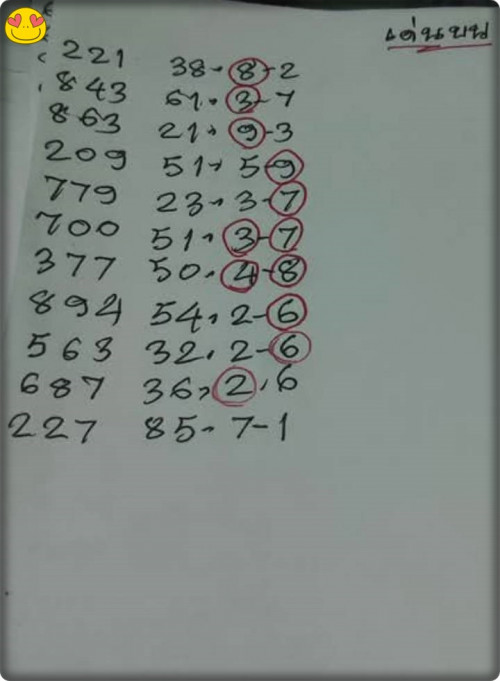 เด่นบน
221 38-8-2
843 61-3-7
863 21-9-3
209 51-5-9
779 23-3-7
700 51-3-7
377 50-4-8
894 54-2-6
563 32-2-6
687 36-2-6
227 85-7-1